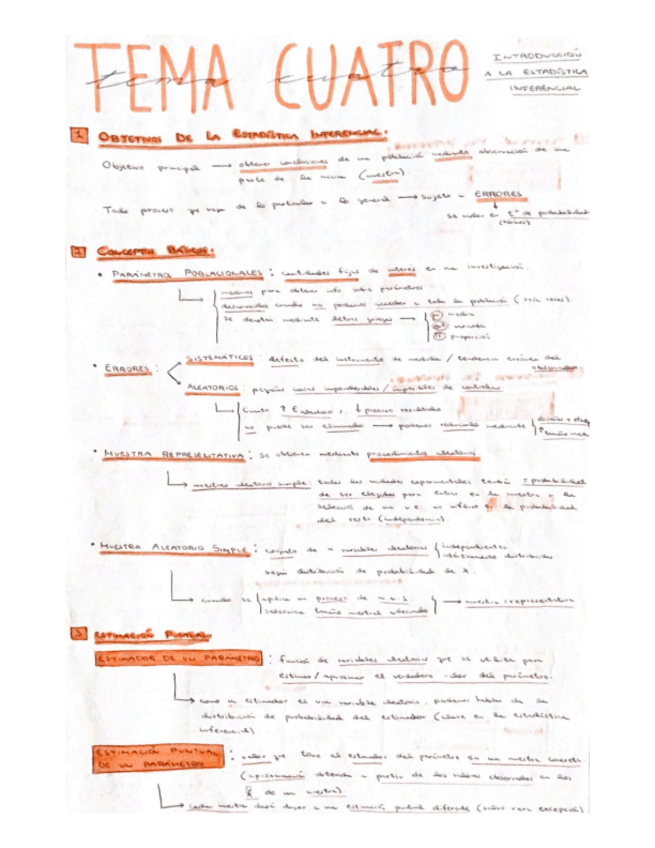 TEMA CUATRO
tema cuatro
INTRODUCCIÓN
A LA ESTADÍSTICA
INFERENCIAL
1 OBJETIVOS DE LA ESTADÍSTICA INFERENCIAL.
Objetivo principal → obtener conclusiones de una población mediante observación de una
parte de la misma (muestra).
Todo proceso que vaya de lo particular a lo general → sujeto a ERRORES
se miden en tª de probabilidad
2 CONCEPTOS BÁSICOS:
• PARÁMETROS POBLACIONALES: cantidades fijas de interés en una investigación.
para obtener info sobre parámetros
desconocidos cuando no podemos acceder a toda la población
se denotan mediante letras griegas →
media
varianza
proporción
• ERRORES:
SISTEMÁTICOS: defecto del instrumento de medida / tendencia errónea del
observador.
ALEATORIOS: pequeñas causas impredecibles / imposibles de controlar
↑ E aleatorio, ↓ preciso resultado
no puede ser eliminado → podemos reducirlo mediante
• MUESTRA REPRESENTATIVA: se obtiene mediante procedimiento aleatorio
muestreo aleatorio simple: todas las unidades experimentales tendrán = probabilidad
de ser elegidas para entrar en la muestra y la
selección de una u.e. no influye en la probabilidad
del resto (independencia).
• MUESTRA ALEATORIO SIMPLE: conjunto de n variables aleatorias
independientes
idénticamente distribuidas
según distribución de probabilidad de X.
cuando se
aplica un proceso de m.a.s.
selecciona tamaño muestral adecuado
→ muestra representativa
3 ESTIMACIÓN PUNTUAL.
ESTIMADOR DE UN PARÁMETRO: función de variables aleatorias que se utiliza para
estimar / aproximar el verdadero valor del parámetro.
como un estimador es una variable aleatoria, podemos hablar de la
distribución de probabilidad del estimador (clave en la estadística
inferencial)
ESTIMACIÓN PUNTUAL
DE UN PARÁMETRO: valor que toma el estimador del parámetro en una muestra concreta.
(aproximación obtenida a partir de los valores observados en las
de una muestra).
cada muestra dará lugar a una estimación puntual diferente (salvo rara excepción)